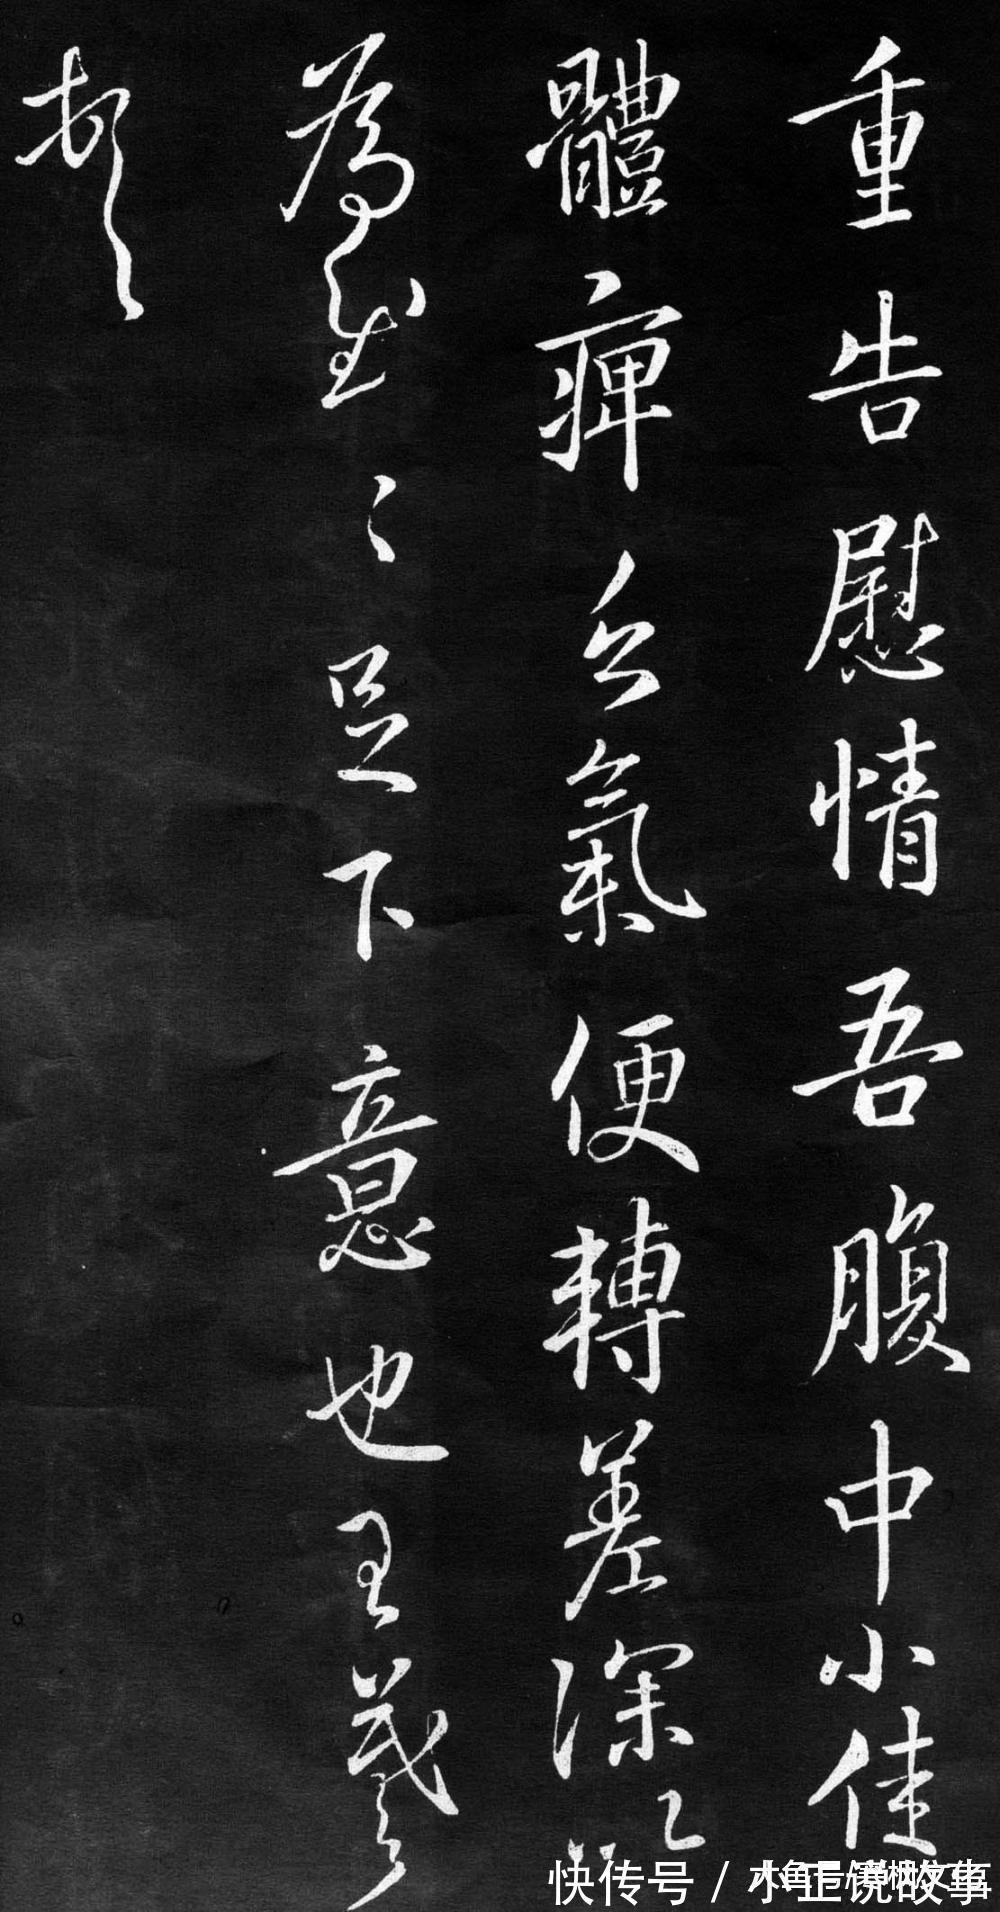 重告慰情吾腹中小佳
體痺乞氣便轉差深〻
為慰〻足下意也王羲
頓
快传号 / 小正说故事